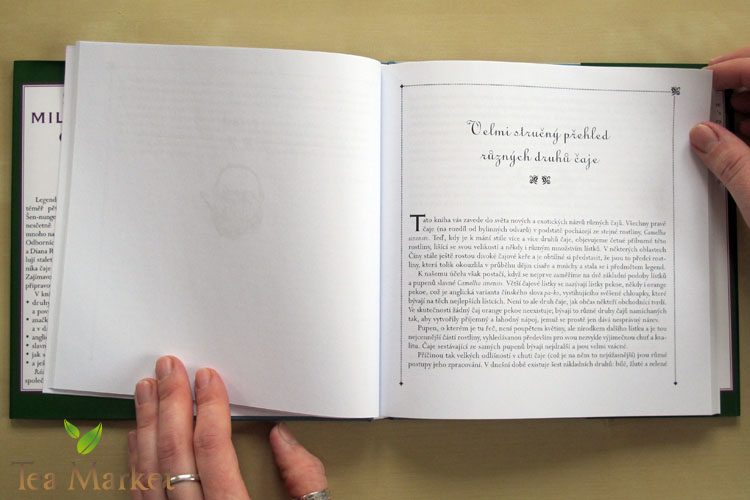 MIL
Legend
téměř pě
Šen-nunge
nesčetně
mnoho na
Odborníc
a Diana R
lují stalet
nika čaje
Zajímavo
připravo
V kn
• druhy
a pov
• značk
a v d
• angli
• slavn
• jak s
a po
Velmi stručný přehled
různých druhů čaje
Tato kniha vás zavede do světa nových a exotických názvů různých čajů. Všechny pravé
čaje (na rozdíl od bylinných odvarů) v podstatě pocházejí ze stejné rostliny, Camellia
sinensis. Teď, kdy je k mání stále více a více druhů čaje, objevujeme četné příbuzné této
rostliny, lišící se svou velikostí a někdy i různým množstvím lístků. V některých oblastech
Číny stále ještě rostou divoké čajové keře a je obtížné si představit, že jsou to předci rost-
liny, která tolik okouzlila v průběhu dějin císaře a mnichy a stala se i předmětem legend.
K našemu účelu však postačí, když se nejprve zaměříme na dvě základní podoby lístků
a pupenů slavné Camellie sinensis. Větší čajové lístky se nazývají lístky pekoe, někdy i orange
pekoe, což je anglická varianta čínského slova pa-ho, vystihujícího sněžné chloupky, které
bývají na těch nejlepších lístcích. Není to ale druh čaje, jak občas někteří obchodníci tvrdí.
Ve skutečnosti žádný čaj orange pekoe neexistuje; bývají to různé druhy čajů namíchaných
tak, aby vytvořily příjemný a lahodný nápoj, jemuž se prostě jen dává nesprávný název.
Pupen, o kterém je tu řeč, není poupětem květiny, ale zárodkem dalšího lístku a je tou
nejcennější částí rostliny, vyhledávanou především pro svou nezvykle výjimečnou chuť a kva-
litu. Čaje sestávající ze samých pupenů bývají nejdražší a jsou velmi vzácné.
Příčinou tak velkých odlišností v chuti čaje (což je na něm to nejúžasnější) jsou různé
postupy jeho zpracování. V dnešní době existuje šest základních druhů: bílé, žluté a zelené
Tea Market